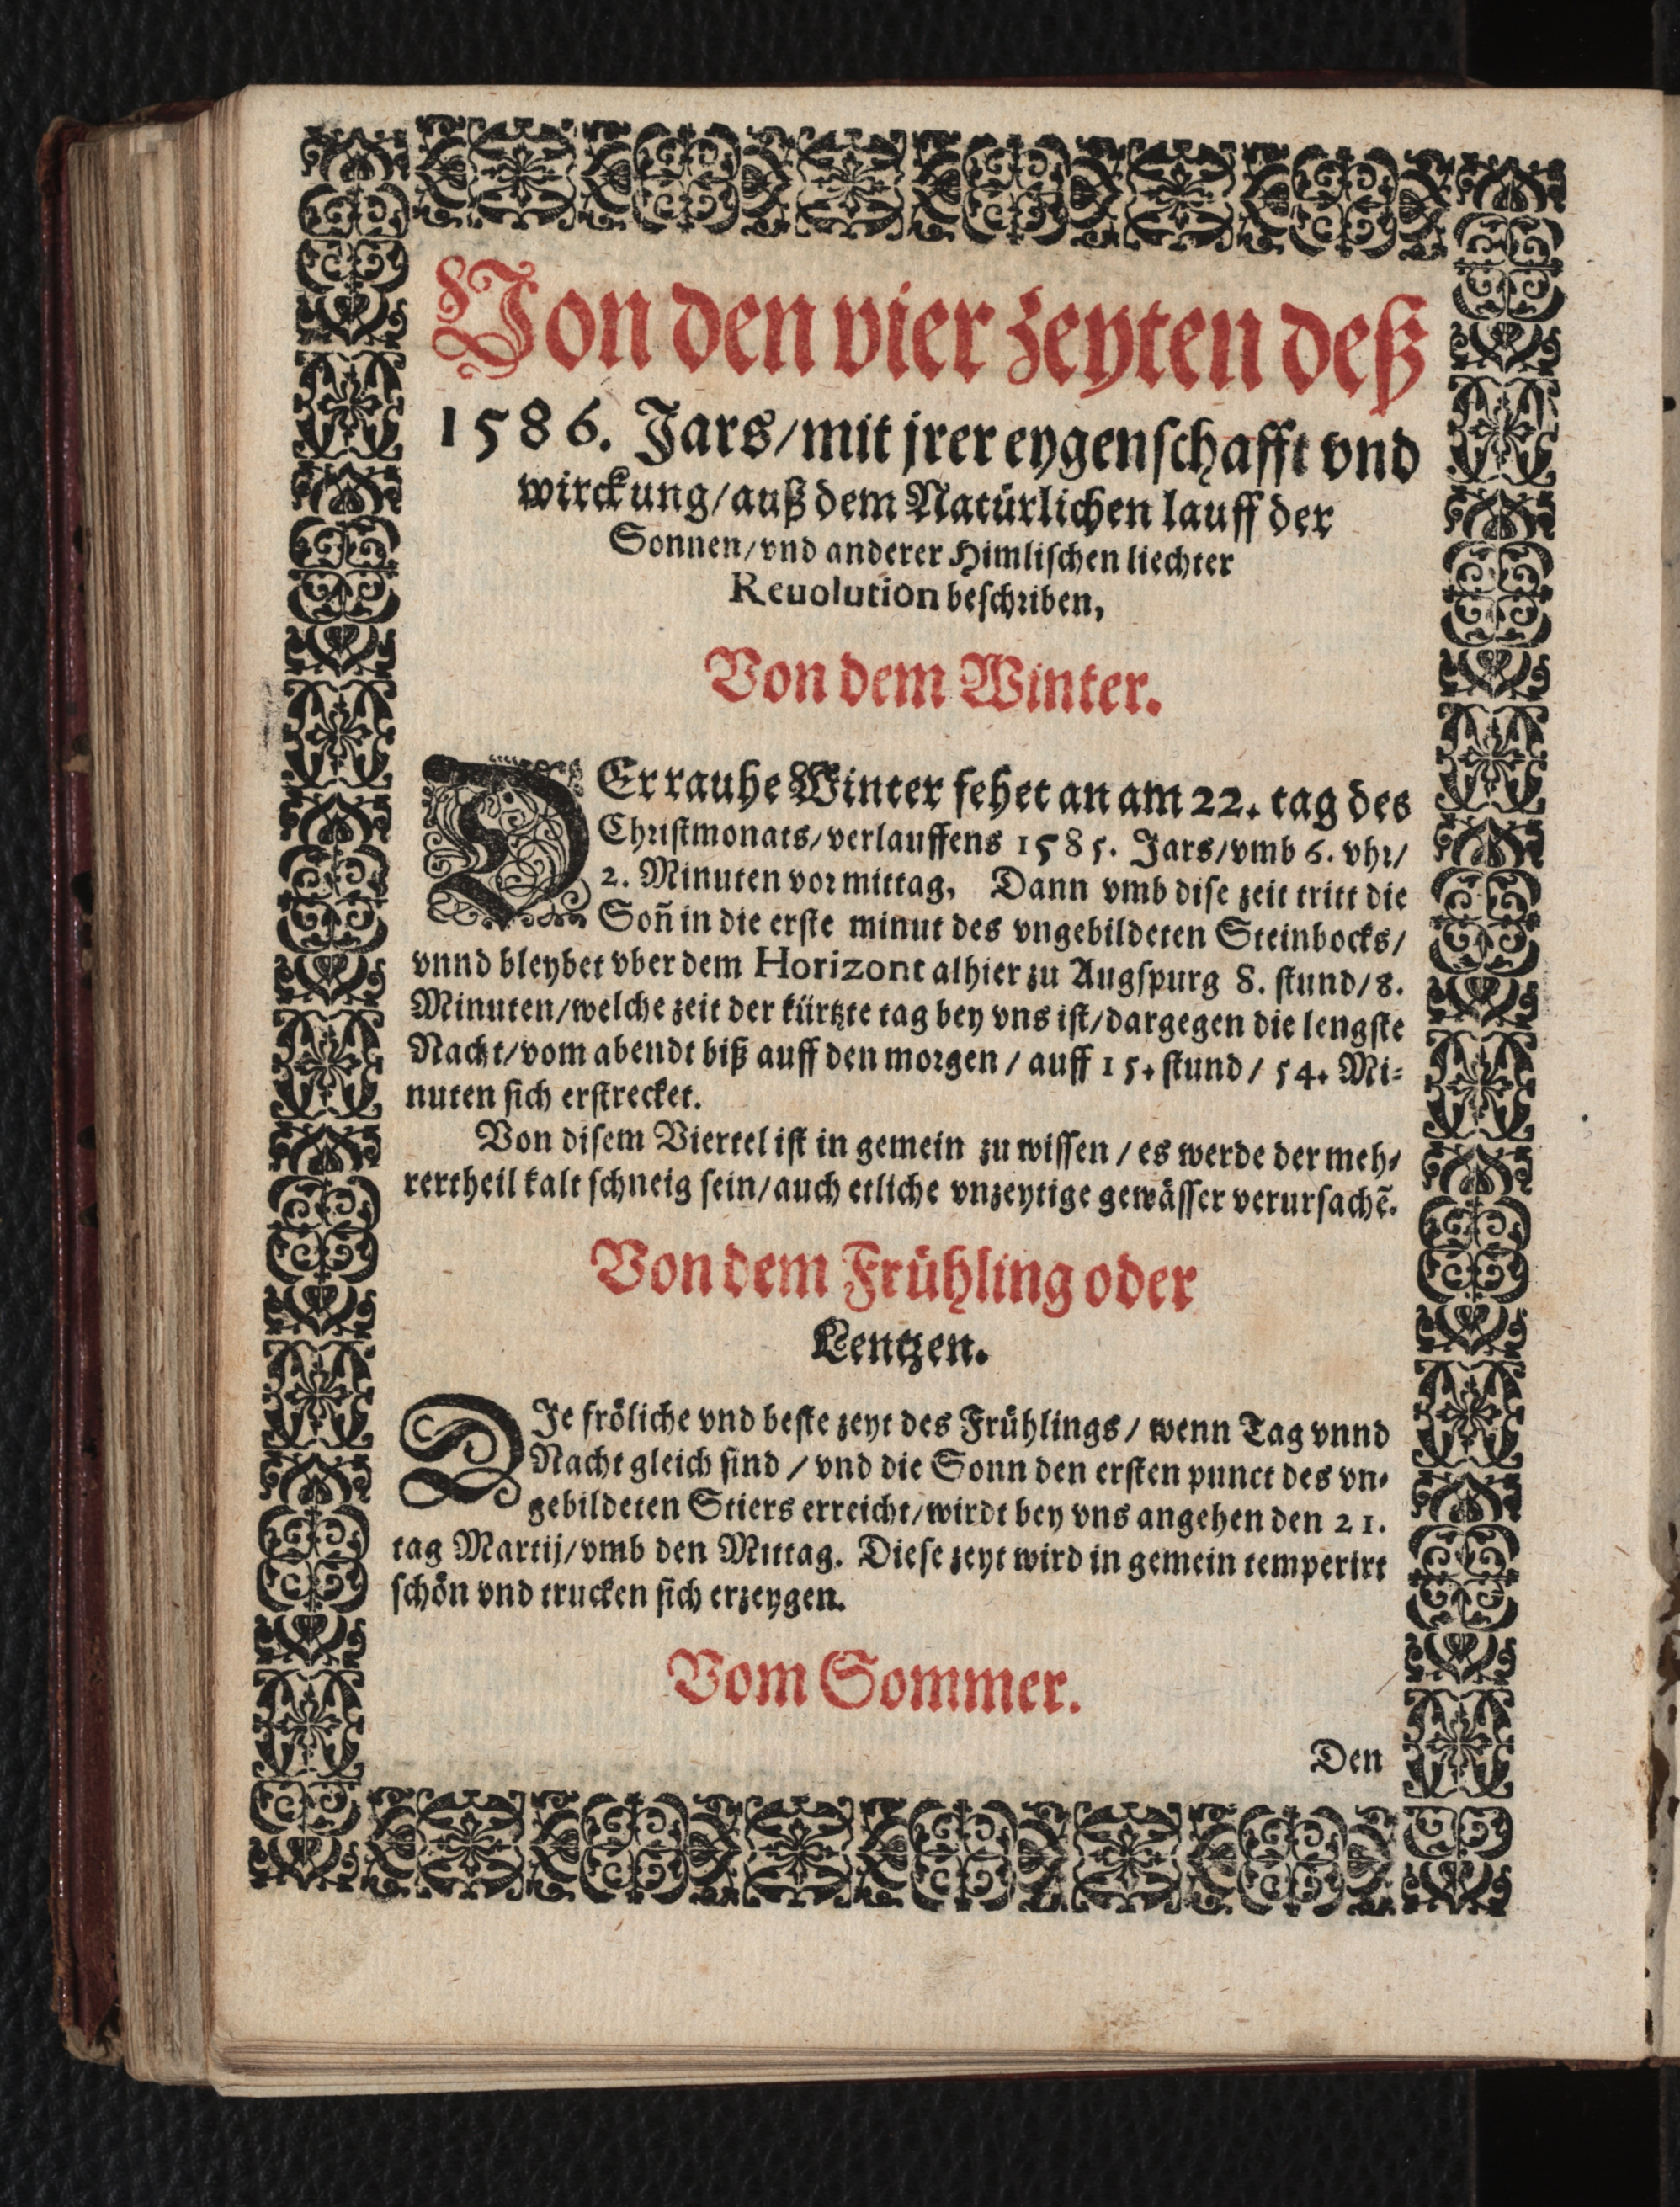 Von den vier zeyten deß
1586. Jars/mit jrer eygenschafft vnd
wirckung/auß dem Natürlichen lauff der
Sonnen/vnd anderer Himlischen liechter
Reuolution beschriben,
Von dem Winter.
DEr rauhe Winter fehet an am 22. tag des
Christmonats/verlauffens 1585. Jars/vmb 6. vhr/
2. Minuten vor mittag, Dann vmb dise zeit tritt die
Soñ in die erste minut des vngebildeten Steinbocks/
vnnd bleybet vber dem Horizont alhier zu Augspurg 8. stund/8.
Minuten/welche zeit der kürtzte tag bey vns ist/dargegen die lengste
Nacht/vom abendt biß auff den morgen/auff 15. stund/54. Mi-
nuten sich erstrecket.
Von disem Viertel ist in gemein zu wissen/es werde der meh-
rertheil kalt schneig sein/auch etliche vnzeytige gewässer verursachẽ.
Von dem Frühling oder
Lentzen.
DIe fröliche vnd beste zeyt des Frühlings/wenn Tag vnnd
Nacht gleich sind/vnd die Sonn den ersten punct des vn-
gebildeten Stiers erreicht/wirdt bey vns angehen den 21.
tag Martij/vmb den Mittag. Diese zeyt wird in gemein temperirt
schön vnd trucken sich erzeygen.
Vom Sommer.
Den